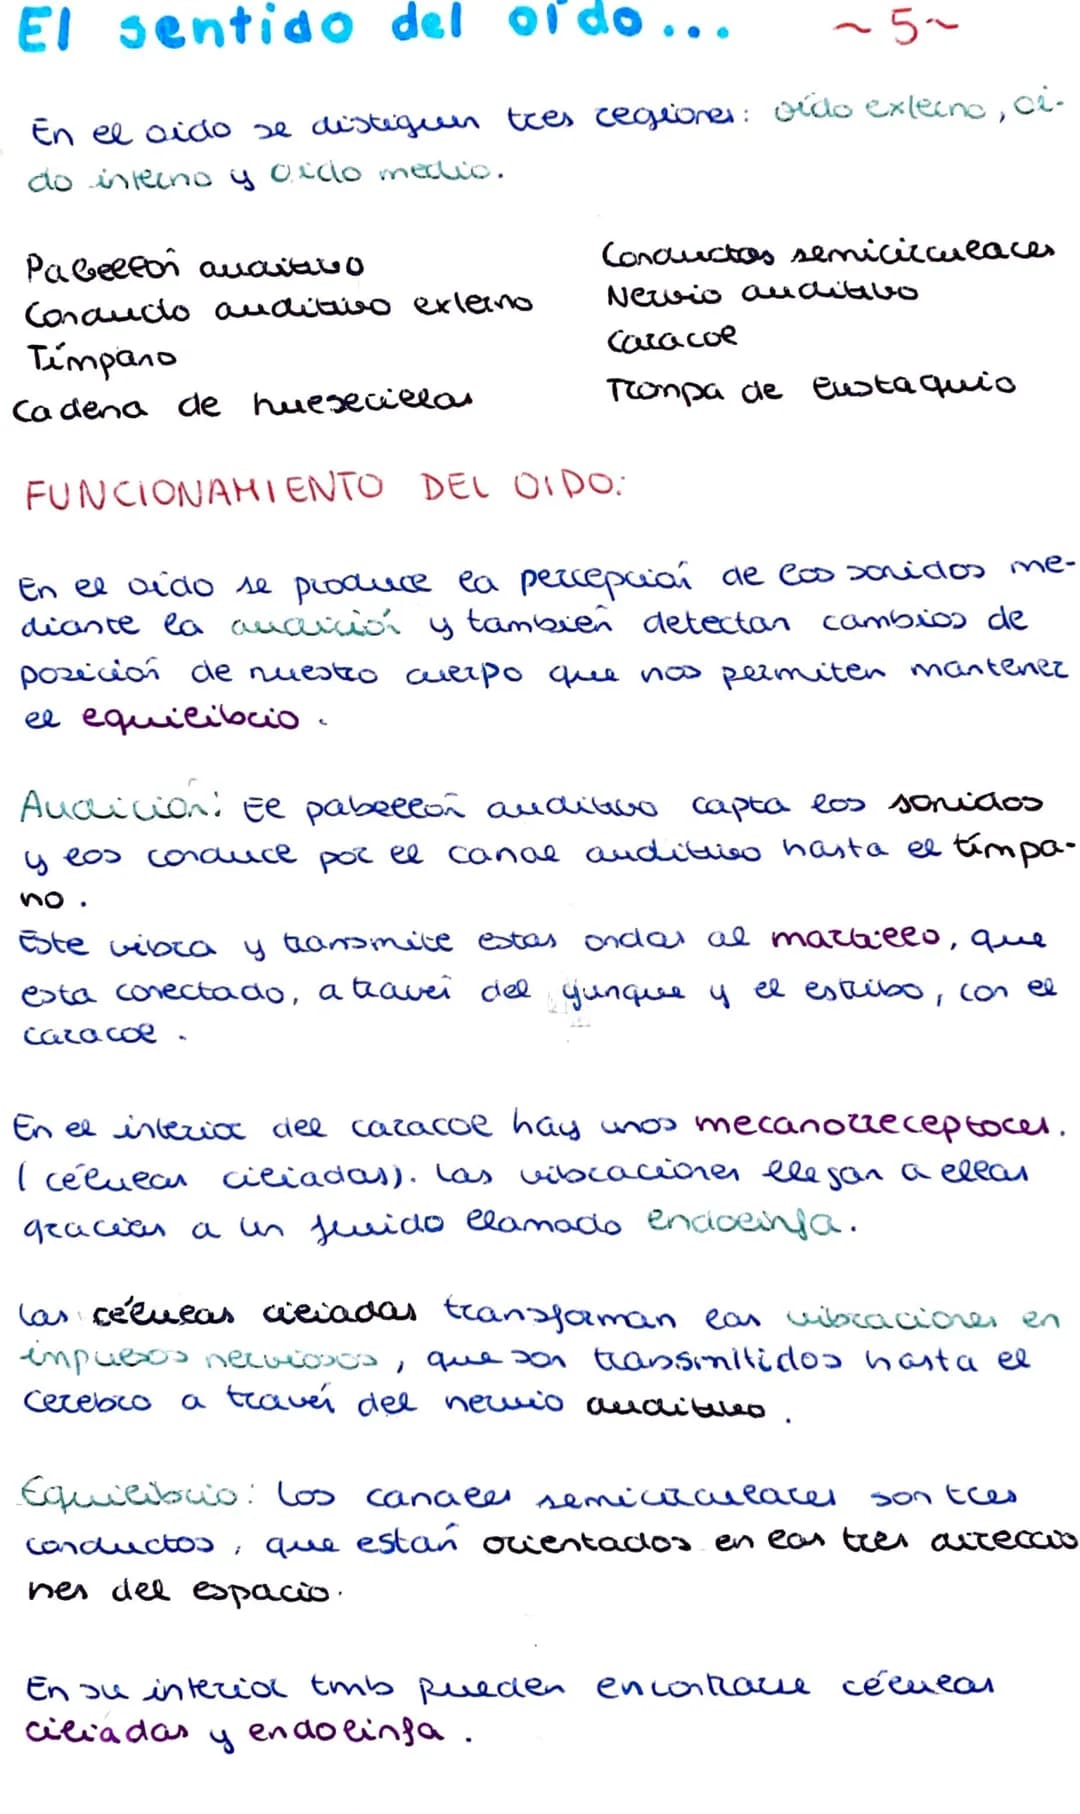 El sentido del oído... ~5~
En el oido se distiguen tres regiones: oído externo, oi-
do interno y oido medio.
Pabellón auditivo
Conducto auditivo externo
Tímpano
Cadena de huesecillos
Conductos semicirculares
Nervio auditivo
Caracol
Trompa de Eustaquio
FUNCIONAMIENTO DEL OIDO:
En el oido se produce la percepción de los sonidos me-
diante la audición y también detectan cambios de
posición de nuestro cuerpo que nos permiten mantener
el equilibrio.
Audición: El pabellón auditivo capta los sonidos
y los conduce por el canal auditivo hasta el tímpa-
no.
Este vibra y transmite estas ondas al martillo, que
esta conectado, a través del yunque y el estribo, con el
caracol.
En el interior del caracol hay unos mecanorreceptores.
(células ciliadas). Las vibraciones llegan a ellas
gracias a un fluido llamado endolinfa.
Las células ciliadas transforman las vibraciones en
impulsos nerviosos, que son transimitidos hasta el
cerebro a través del nervio auditivo.
Equilibrio: Los canales semicirculares son tres
conductos, que están orientados en las tres direccio
nes del espacio.
En su interior tmb pueden encontrarse células
ciliadas y endolinfa.